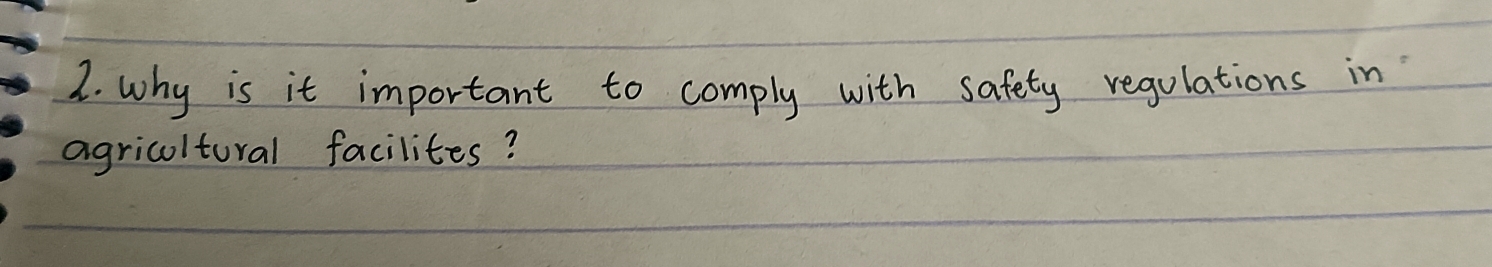 2. why is it important to comply with safety regulations in
agricultural facilites?